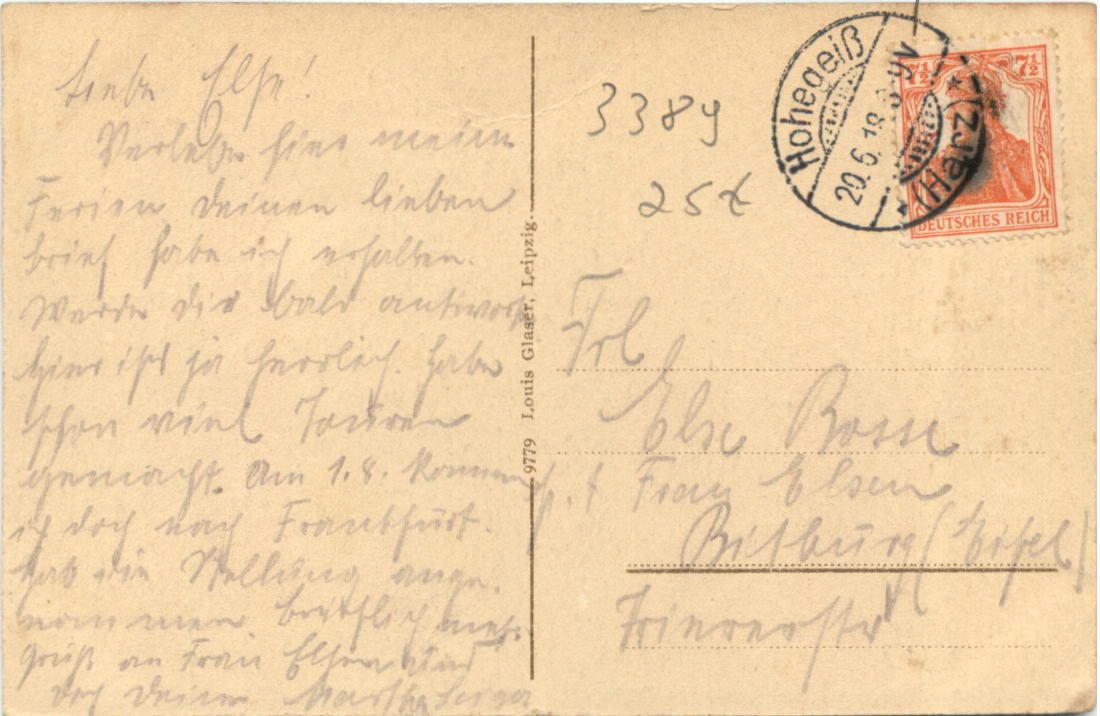 Liebe Else!
Verlebe hier meine
Ferien deinen lieben
brief habe ich erhalten.
Werde dir bald antworten
hier ists ja herrlich. habe
schon viel Touren
gemacht. Am 1.8. komme
ich doch nach Frankfurt.
hab die Stellung ange.
nommen brieflich mehr.
Gruß an Frau Elsen und
dich deine Martha
9779 Louis Glaser, Leipzig.
3389
25
Hohegeiß
20.6.18. 8-9V
(Harz)
7½ 7½
DEUTSCHES REICH
Frl
Else Bosse
Frau Elsen
Bitburg (Eifel)
Triererstr